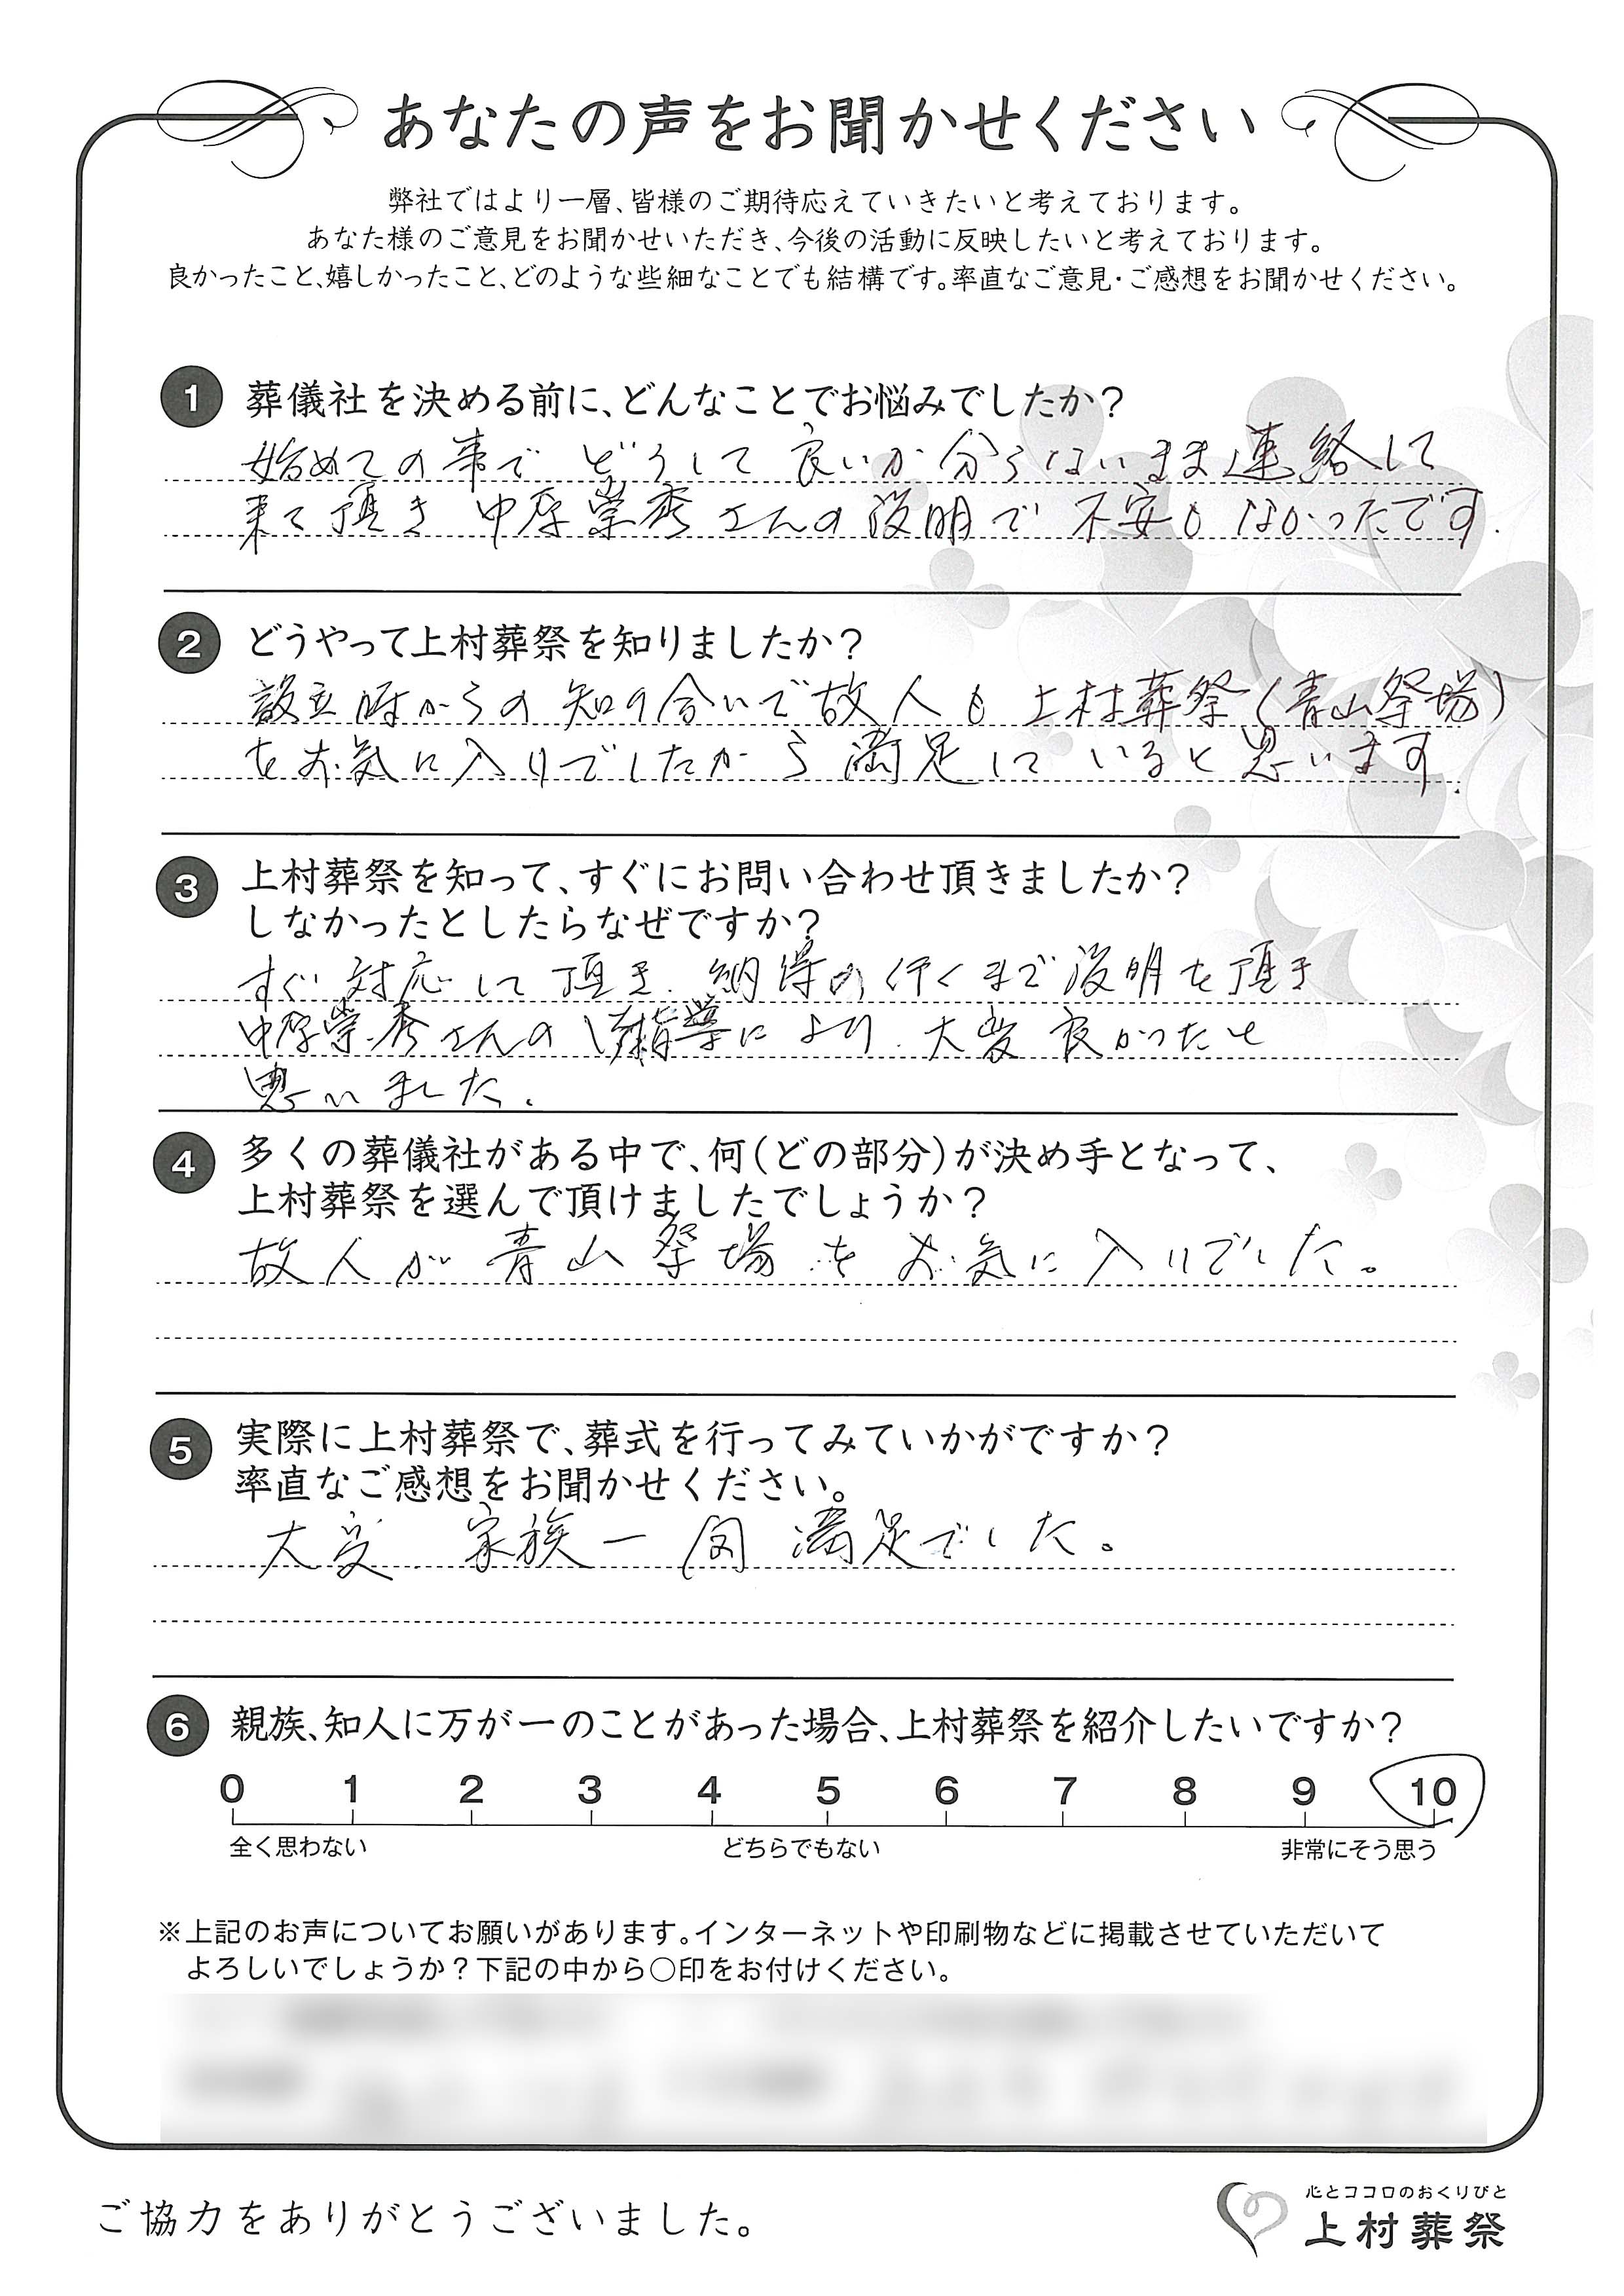 あなたの声をお聞かせください
弊社ではより一層、皆様のご期待応えていきたいと考えております。
あなた様のご意見をお聞かせいただき、今後の活動に反映したいと考えております。
良かったこと、嬉しかったこと、どのような些細なことでも結構です。率直なご意見・ご感想をお聞かせください。
1 葬儀社を決める前に、どんなことでお悩みでしたか？
始めての事で どうして良いか分らないまま連絡して
来て頂き 中原崇秀さんの説明で 不安も なかったです.
2 どうやって上村葬祭を知りましたか？
設立時からの知り合いで故人も上村葬祭(青山祭場)
をお気に入りでしたから満足していると思います.
3 上村葬祭を知って、すぐにお問い合わせ頂きましたか？
しなかったとしたらなぜですか？
すぐ対応して頂き. 納得の行くまで説明を頂き
中原崇秀さんの ご指導により. 大変良かったと
思いました.
4 多くの葬儀社がある中で、何（どの部分）が決め手となって、
上村葬祭を選んで頂けましたでしょうか？
故人が青山祭場をお気に入りでした。
5 実際に上村葬祭で、葬式を行ってみていかがですか？
率直なご感想をお聞かせください。
大変. 家族一同 満足でした。
6 親族、知人に万が一のことがあった場合、上村葬祭を紹介したいですか？
0 1 2 3 4 5 6 7 8 9 10
全く思わない どちらでもない 非常にそう思う
※上記のお声についてお願いがあります。インターネットや印刷物などに掲載させていただいて
よろしいでしょうか？下記の中から○印をお付けください。
ご協力をありがとうございました。
心とココロのおくりびと
上村葬祭